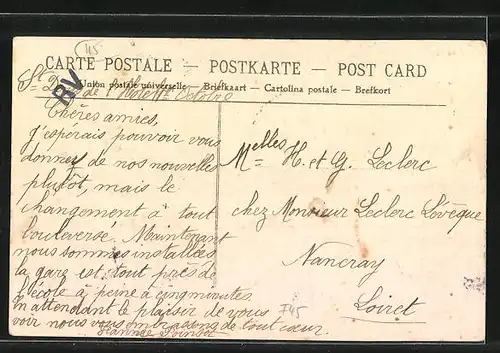 45
CARTE POSTALE – POSTKARTE – POST CARD
Union postale universelle – Briefkaart – Cartolina postale – Brefkort
RV
St D de l'Hôtel Octobre
Chères amies,
J'esperais pouvoir vous
donner de nos nouvelles
plutôt, mais le
changement à tout
bouleversé. Maintenant
nous sommes installées
la gare est tout près de
l'école à peine à cinq minutes
En attendant le plaisir de vous
voir nous vous embrassons de tout cœur.
Jeanne
Melles H. et G. Leclerc
chez Monsieur Leclerc Lévêque
Nancray
Loiret
F45